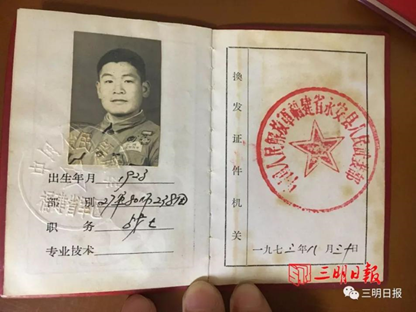 出生年月 1923
部 别 27军80师238团
职 务 战士
专业技术
换发证件机关
中国人民解放军福建省永安县人民武装部
一九七三年八月三十日
三明日报
三明日报